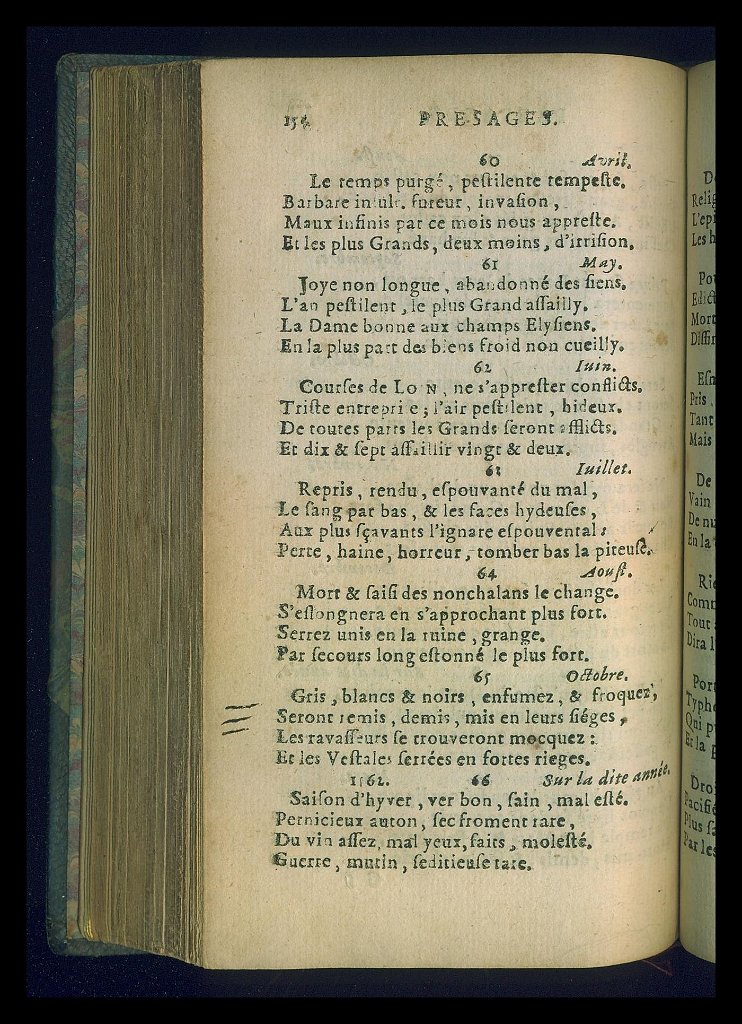 PRESAGES.
60 Avril.
Le temps purgé, pestilente tempeste.
Barbare insult. fureur, invasion,
Maux infinis par ce mois nous appreste.
Et les plus Grands, deux moins, d'irrision.
61 May.
Joye non longue, abandonné des siens.
L'an pestilent, le plus Grand assailly.
La Dame bonne aux champs Elysiens.
En la plus part des biens froid non cueilly.
62 Iuin.
Courses de LON, ne s'apprester conflicts.
Triste entreprise; l'air pestilent, hideux.
De toutes parts les Grands seront afflicts.
Et dix & sept assaillir vingt & deux.
63 Iuillet.
Repris, rendu, espouvanté du mal,
Le sang par bas, & les faces hydeuses,
Aux plus sçavants l'ignare espouvental:
Perte, haine, horreur, tomber bas la piteuse.
64 Aoust.
Mort & saisi des nonchalans le change.
S'eslongnera en s'approchant plus fort.
Serrez unis en la ruine, grange.
Par secours long estonné le plus fort.
65 Octobre.
Gris, blancs & noirs, enfumez, & froquez,
Seront remis, demis, mis en leurs siéges,
Les ravasseurs se trouveront mocquez:
Et les Vestales serrées en fortes rieges.
1562. 66 Sur la dite année.
Saison d'hyver, ver bon, sain, mal esté.
Pernicieux auton, sec froment rare,
Du vin assez, mal yeux, faits, molesté.
Guerre, mutin, seditieuse tare.